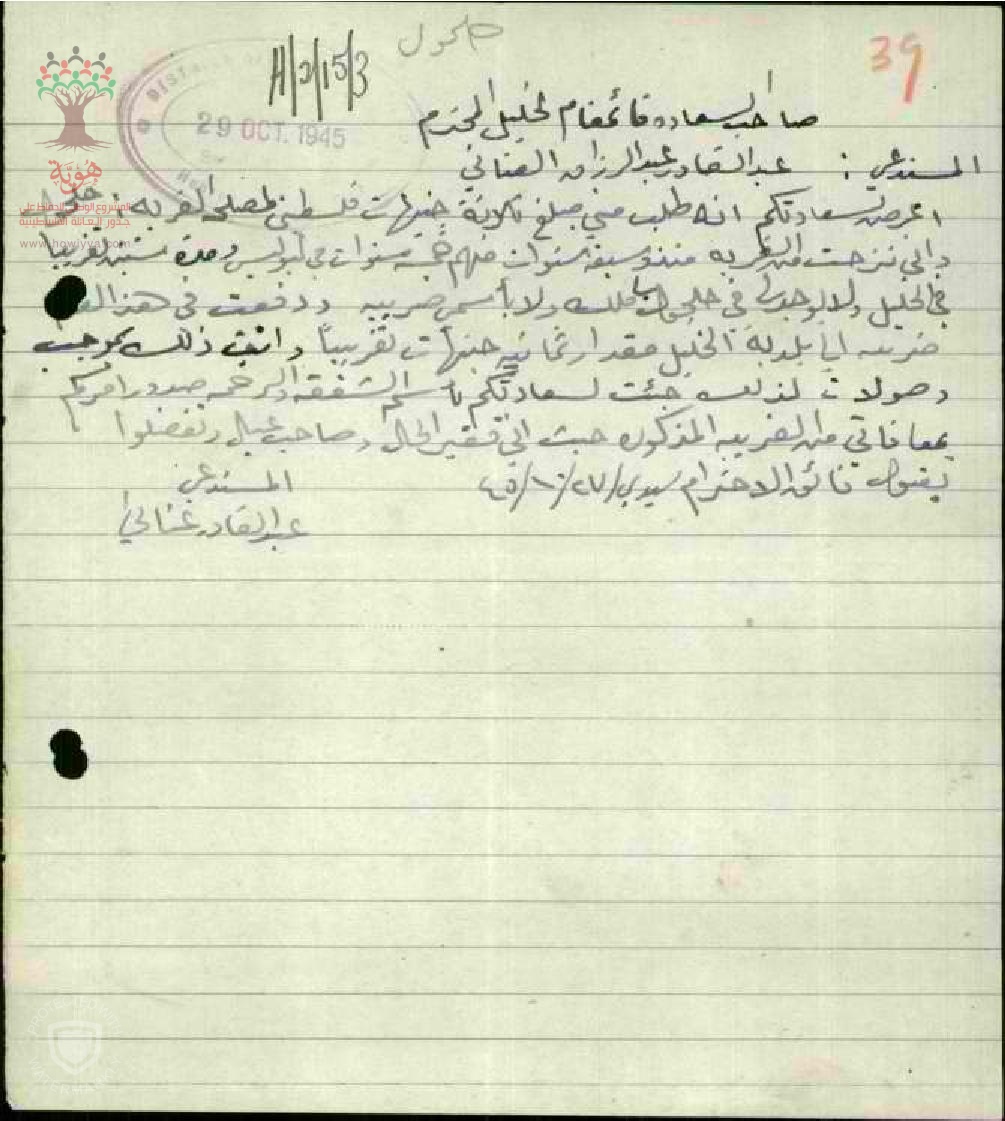 حلحول
39
A/2/15/3
DISTRICT
29 OCT. 1945
صاحب السعاده قائمقام الخليل المحترم
المستدعي : عبد القادر عبد الرزاق العناني
اعرض لسعادتكم انه طلب مني مبلغ ثلاثة جنيهات فلسطيني لمصلحة القرية حلحول
واني نزحت من القريه منذ سبعة سنوات منهم خمسة سنوات في البوليس ومدة سنتين تقريباً
في الخليل ولا يوجد لي في حلحول املاك ولا باسمي ضريبه ودفعت في هذا العام
ضريبه الى بلدية الخليل مقدار ثمانيه جنيهات تقريباً واثبت ذلك بموجب
وصولات لذلك جئت لسعادتكم باسم الشفقه والرحمه صدور امركم
بمعافاتي من الضريبه المذكوره حيث اني فقير الحال وصاحب عيال وتفضلوا
بقبول فائق الاحترام سيدي ٢٧/١٠/٤٥
المستدعي
عبد القادر عناني
هُويّة
المشروع الوطني للحفاظ على
جذور العائلة الفلسطينية
www.howiyya.com